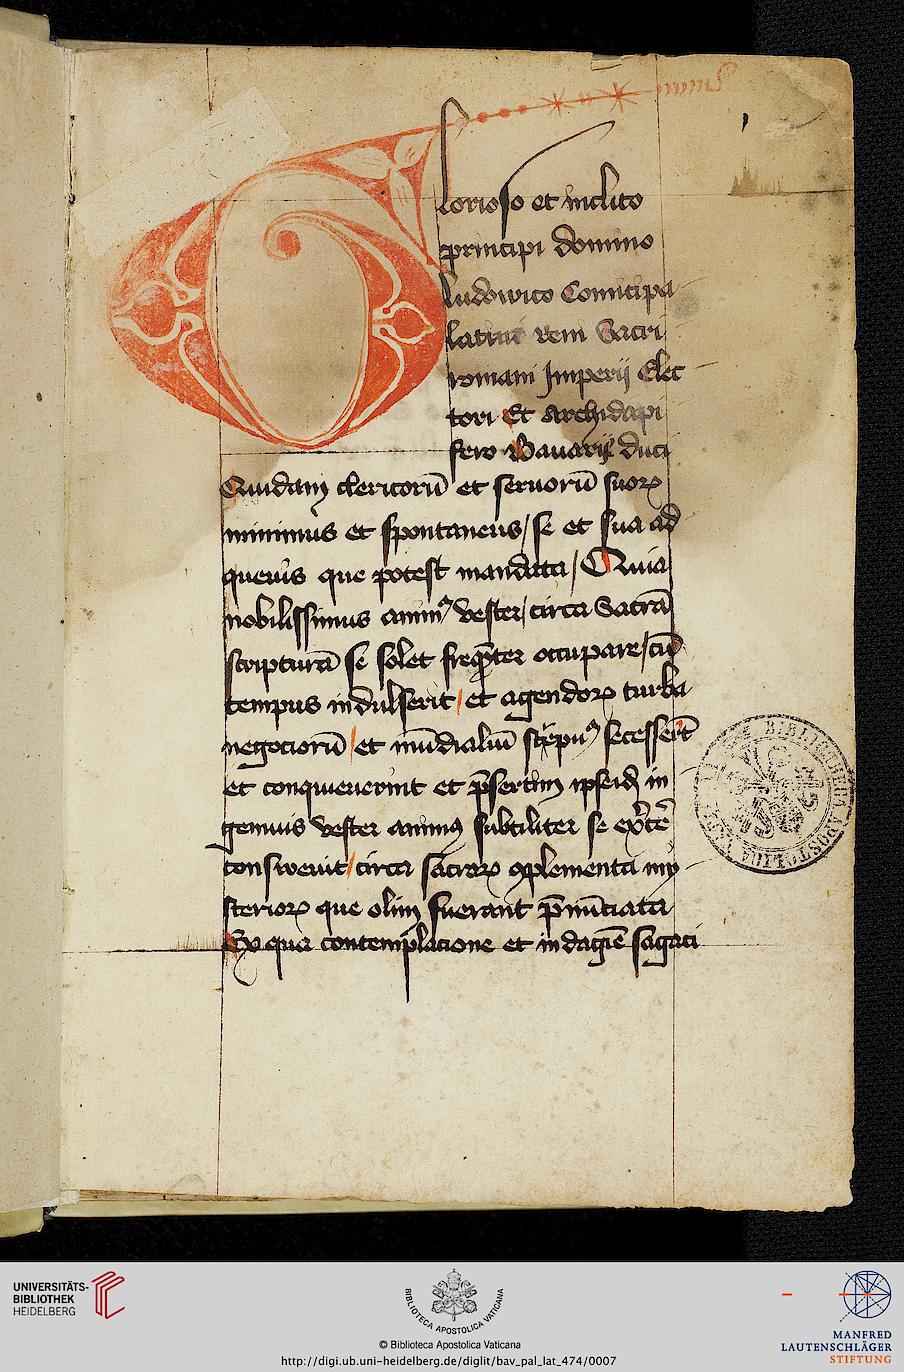 Glorioso et inclito
principi domino
ludowico Comiti pa
latini reni Sacri
romani Imperii Elec
tori Et Archidapi
fero Bavarie duci
Quidam clericorū et servorū suoꝝ
minimus et spontaneus / se et sua ad
quevis que potest mandata / Quia
nobilissimus animꝰ vester / circa Sacrā
scripturā se solet freqn̄ter occupare / cū
tempus indulserit / et agendoꝝ turba
negociorū / et mūdialiū strepitꝰ secesserīt
et conquieverint et p̄sertim ipseid in
genuus vester animꝰ subtiliter se ex̄cē
consuevit / circa sacroꝝ ꝯplementa my
sterioꝝ que olim fuerant p̄nūciata
Ex qua contemplacione et indagīe sagaci
BIBLIOTHECA APOSTOLICA VATICANA
UNIVERSITÄTS-
BIBLIOTHEK
HEIDELBERG
BIBLIOTECA APOSTOLICA VATICANA
© Biblioteca Apostolica Vaticana
http://digi.ub.uni-heidelberg.de/diglit/bav_pal_lat_474/0007
MANFRED
LAUTENSCHLÄGER
STIFTUNG